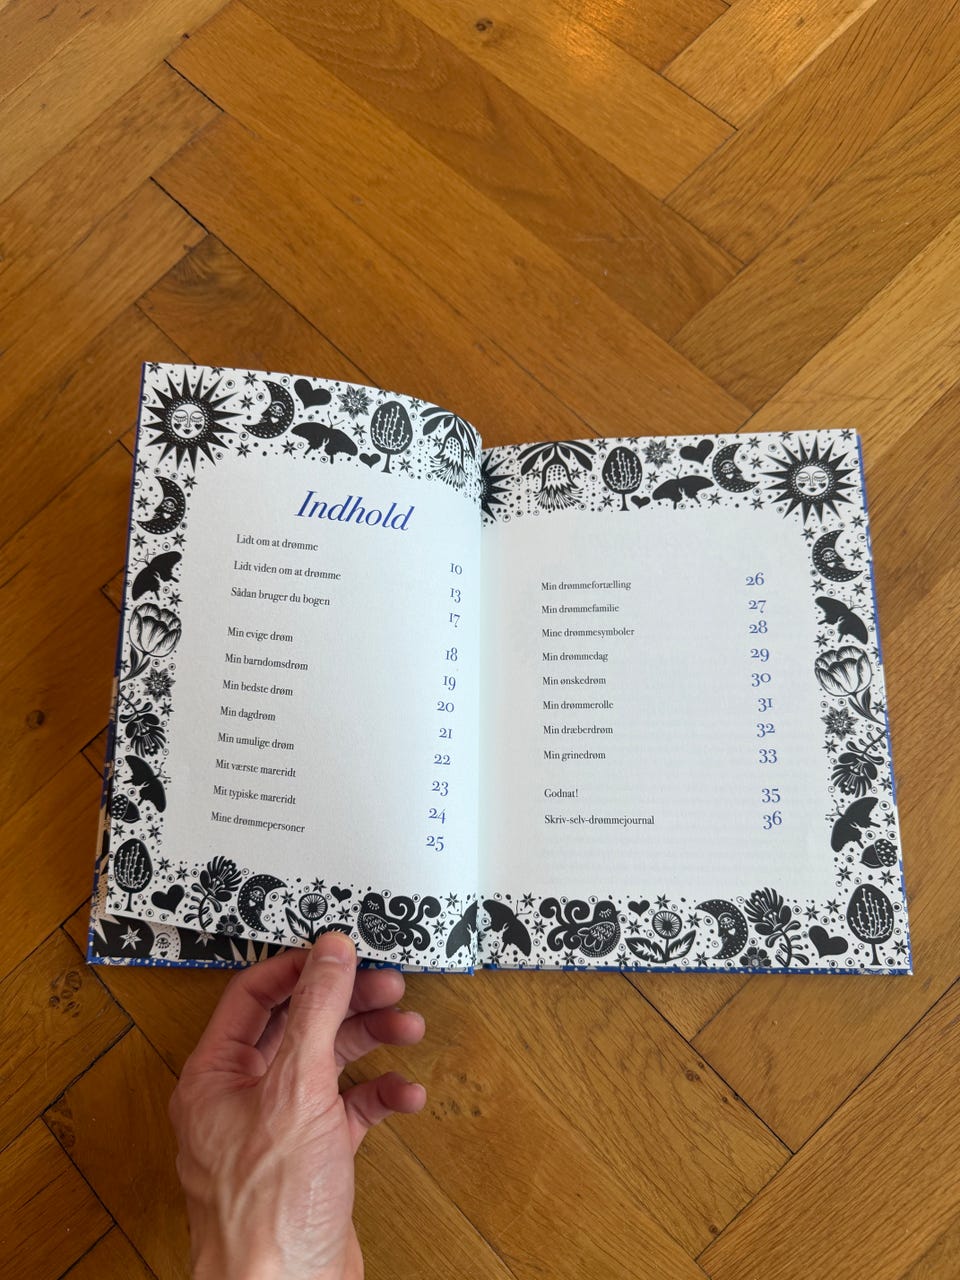 Indhold
Lidt om at drømme 10
Lidt viden om at drømme 13
Sådan bruger du bogen 17
Min evige drøm 18
Min barndomsdrøm 19
Min bedste drøm 20
Min dagdrøm 21
Min umulige drøm 22
Mit værste mareridt 23
Mit typiske mareridt 24
Mine drømmepersoner 25
Min drømmefortælling 26
Min drømmefamilie 27
Mine drømmesymboler 28
Min drømmedag 29
Min ønskedrøm 30
Min drømmerolle 31
Min dræberdrøm 32
Min grinedrøm 33
Godnat! 35
Skriv-selv-drømmejournal 36